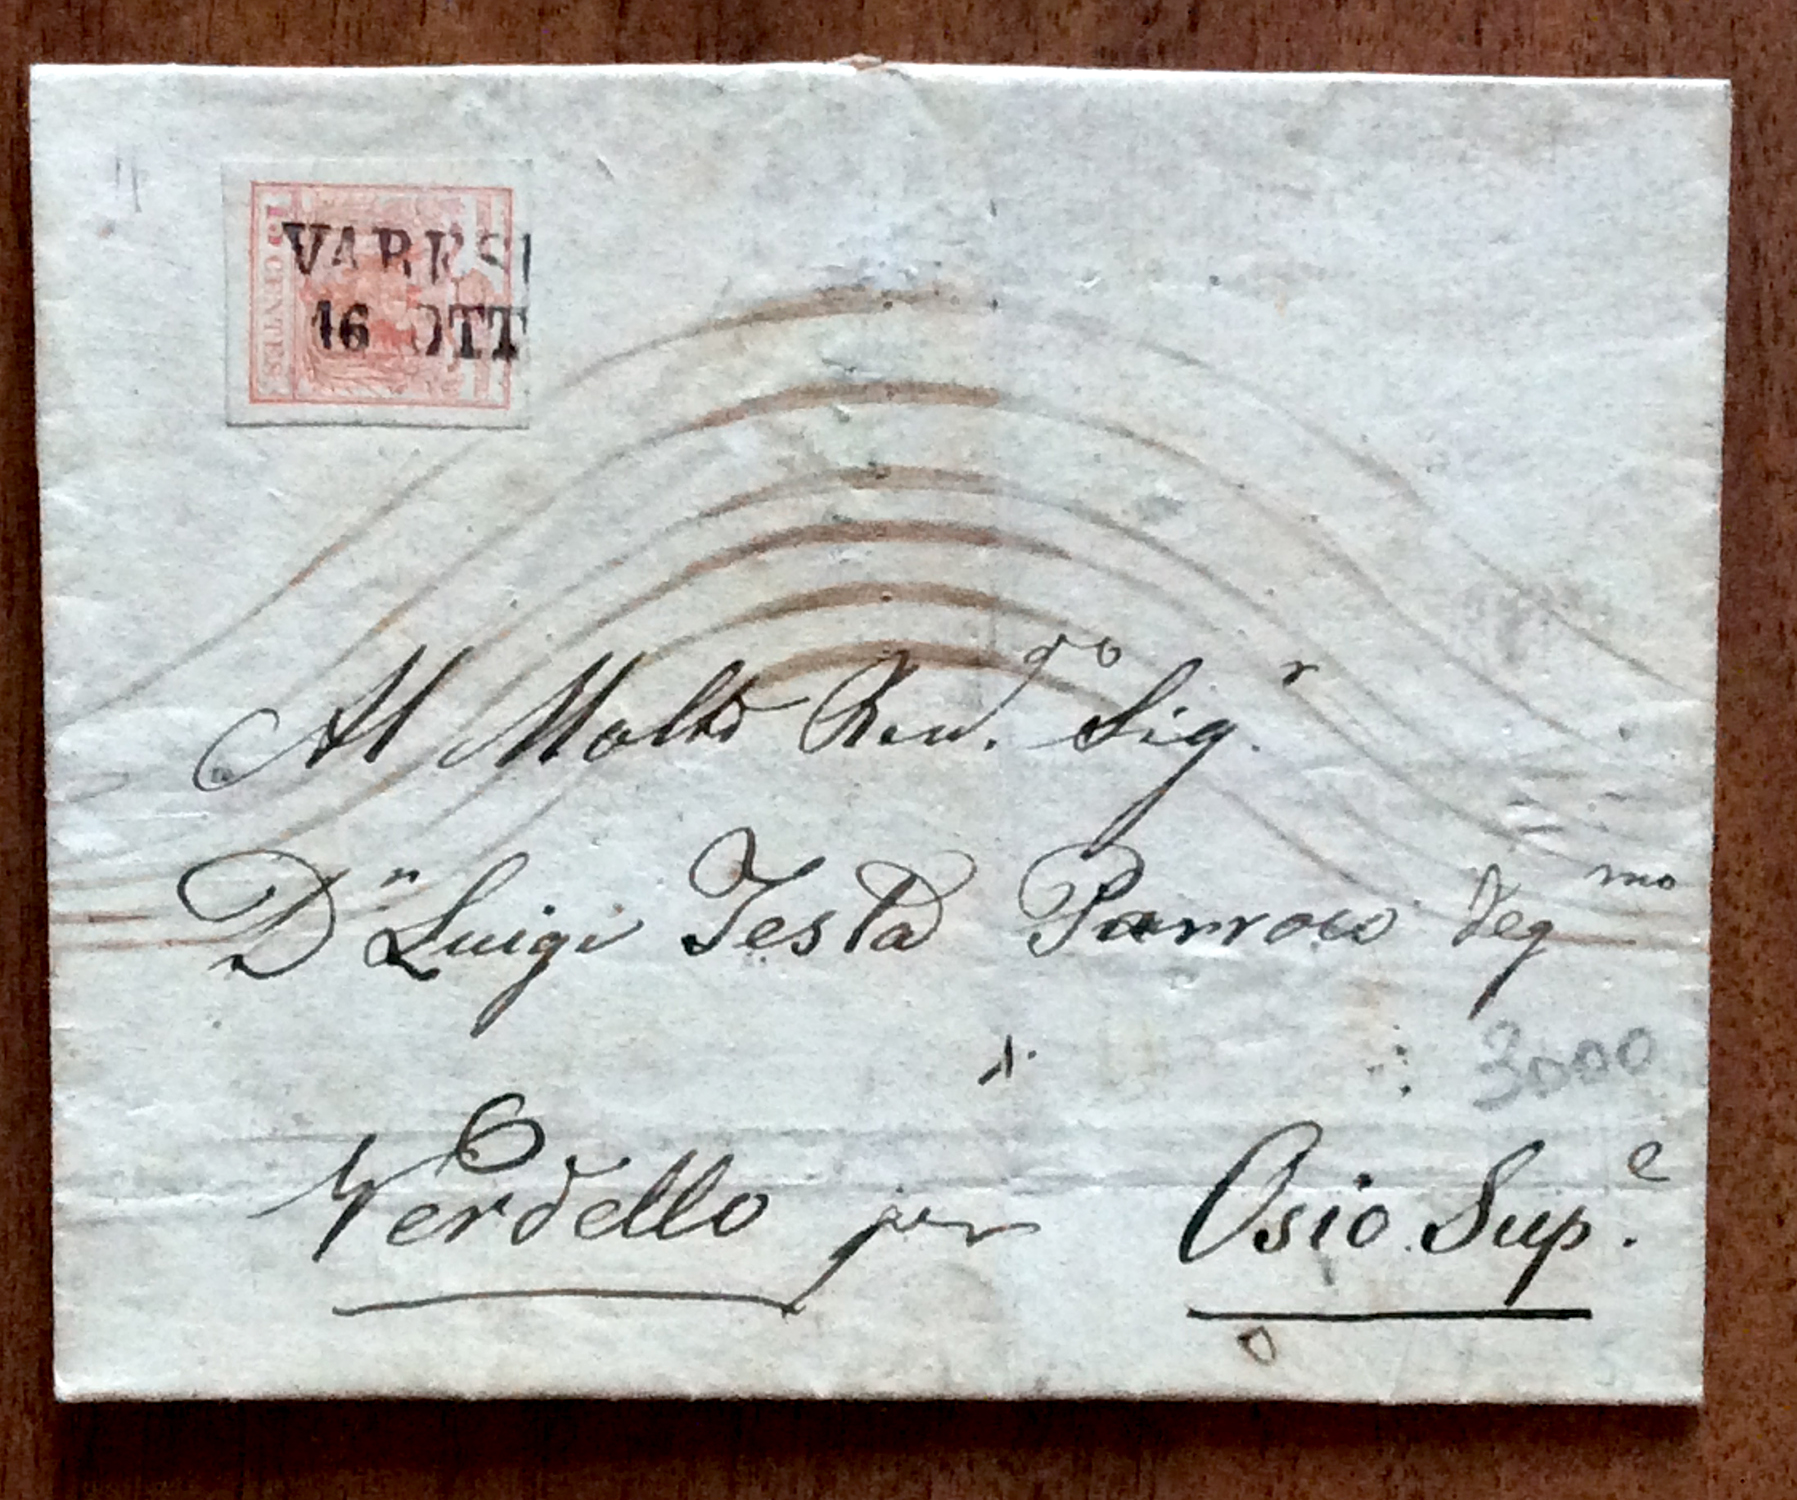 15 CENTES
VARES
16 OTT
Al Molto Rev.do Sig.r
Dn Luigi Testa Parroco degmo
3000
Verdello per Osio Sup.e